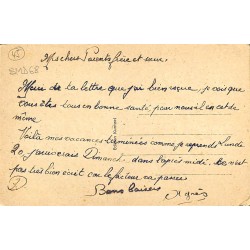 Mes chers Parents frère et sœur.
Merci de la lettre que j'ai bien reçue, je vois que
vous êtes tous en bonne santé, pour nous il en est de
même.
Voilà mes vacances terminées comme je reprends lundi
20, Dimanche dans l'après midi. Ce n'est
pas très bien écrit car le facteur va passer
Bons baisers